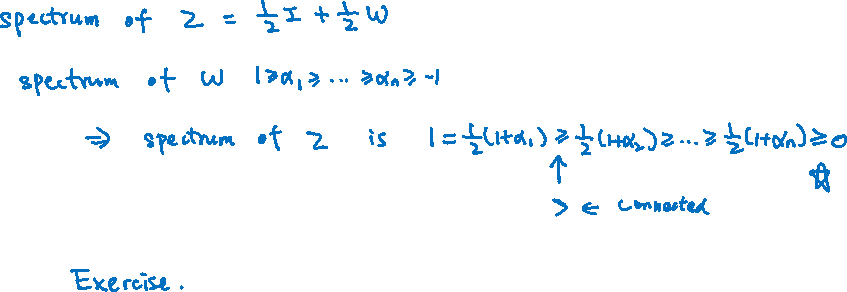 spectrum of Z = ½I + ½W
spectrum of W 1 ≥ α₁ ≥ ... ≥ αₙ ≥ -1
⇒ spectrum of Z is 1 = ½(1+α₁) ≥ ½(1+α₂) ≥ ... ≥ ½(1+αₙ) ≥ 0
↑ ☆
> ← connected
Exercise.